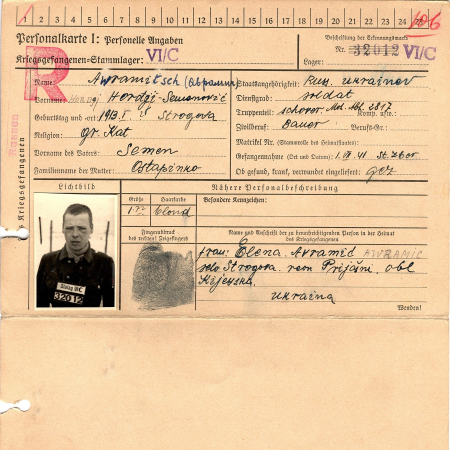 1 2 3 4 5 6 7 8 9 10 11 12 13 14 15 16 17 18 19 20 21 22 23 24 25
106
Personalkarte I: Personelle Angaben
Kriegsgefangenen-Stammlager: VI/C
Beschriftung der Erkennungsmarke
Nr. 32012 VI/C
Lager:
R
Russen
Kriegsgefangenen
Name: Awramitsch
Vorname: Herdzi Semenović
Geburtstag und -ort: Strogova
Religion: gr. Kat
Vorname des Vaters: Semen
Familienname der Mutter: Ostapinko
Staatsangehörigkeit: Rus. ukrainov
Dienstgrad: soldat
Truppenteil:
Zivilberuf: Bauer Berufs-Gr.
Matrikel Nr. (Stammrolle des Heimatstaates)
Gefangennahme (Ort und Datum): 41
Ob gesund, krank, verwundet eingeliefert: gez
Lichtbild
Nähere Personalbeschreibung
Größe Haarfarbe Besondere Kennzeichen:
blond
Fingerabdruck
des rechten Zeigefingers
Name und Anschrift der zu benachrichtigenden Person in der Heimat
des Kriegsgefangenen
frau: Elena Avramić AWRAMIC
selo Strogova. reon obl
Kijevska.
ukraina
Stalag VI C
32012
Wenden!